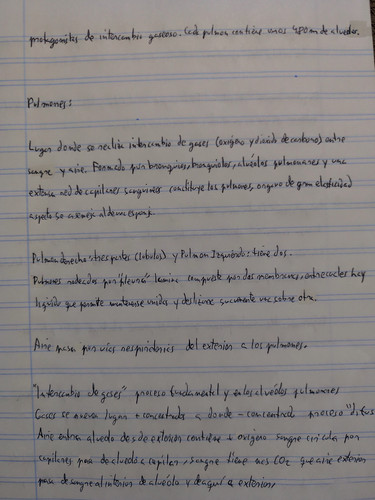 protagonistas de intercambio gaseoso. Cada pulmon contiene unos 480 m de alveolos.
Pulmones:
Lugar donde se realiza intercambio de gases (oxígeno y dioxido de carbono) entre
sangre y aire. Formado por bronquios, bronquiolos, alvéolos pulmonares y una
extensa red de capilares sanguineos constituye los pulmones, organo de gran elasticidad
aspecto se asemeja al de una esponja.
Pulmon derecho: tres partes (lobulos) y Pulmon Izquierdo: tiene dos.
Pulmones rodeados por "pleura" lamina compuesta por dos membranas, entre cuales hay
liquido que permite mantenerse unidas y deslizarse suavemente una sobre otra.
Aire pasa por vías respiratorias del exterior a los pulmones.
"Intercambio de gases" proceso fundamental y en los alveólos pulmonares
Gases se mueve lugar + concentrados a donde - concentrado proceso "difus
Aire entra alveolo desde exterior contiene + oxigeno sangre circula por
capilares pasa de alveolo a capilar, sangre tiene mas CO2 que aire exterior
pasa de sangre al interior de alveólo y de aqui a exterior,